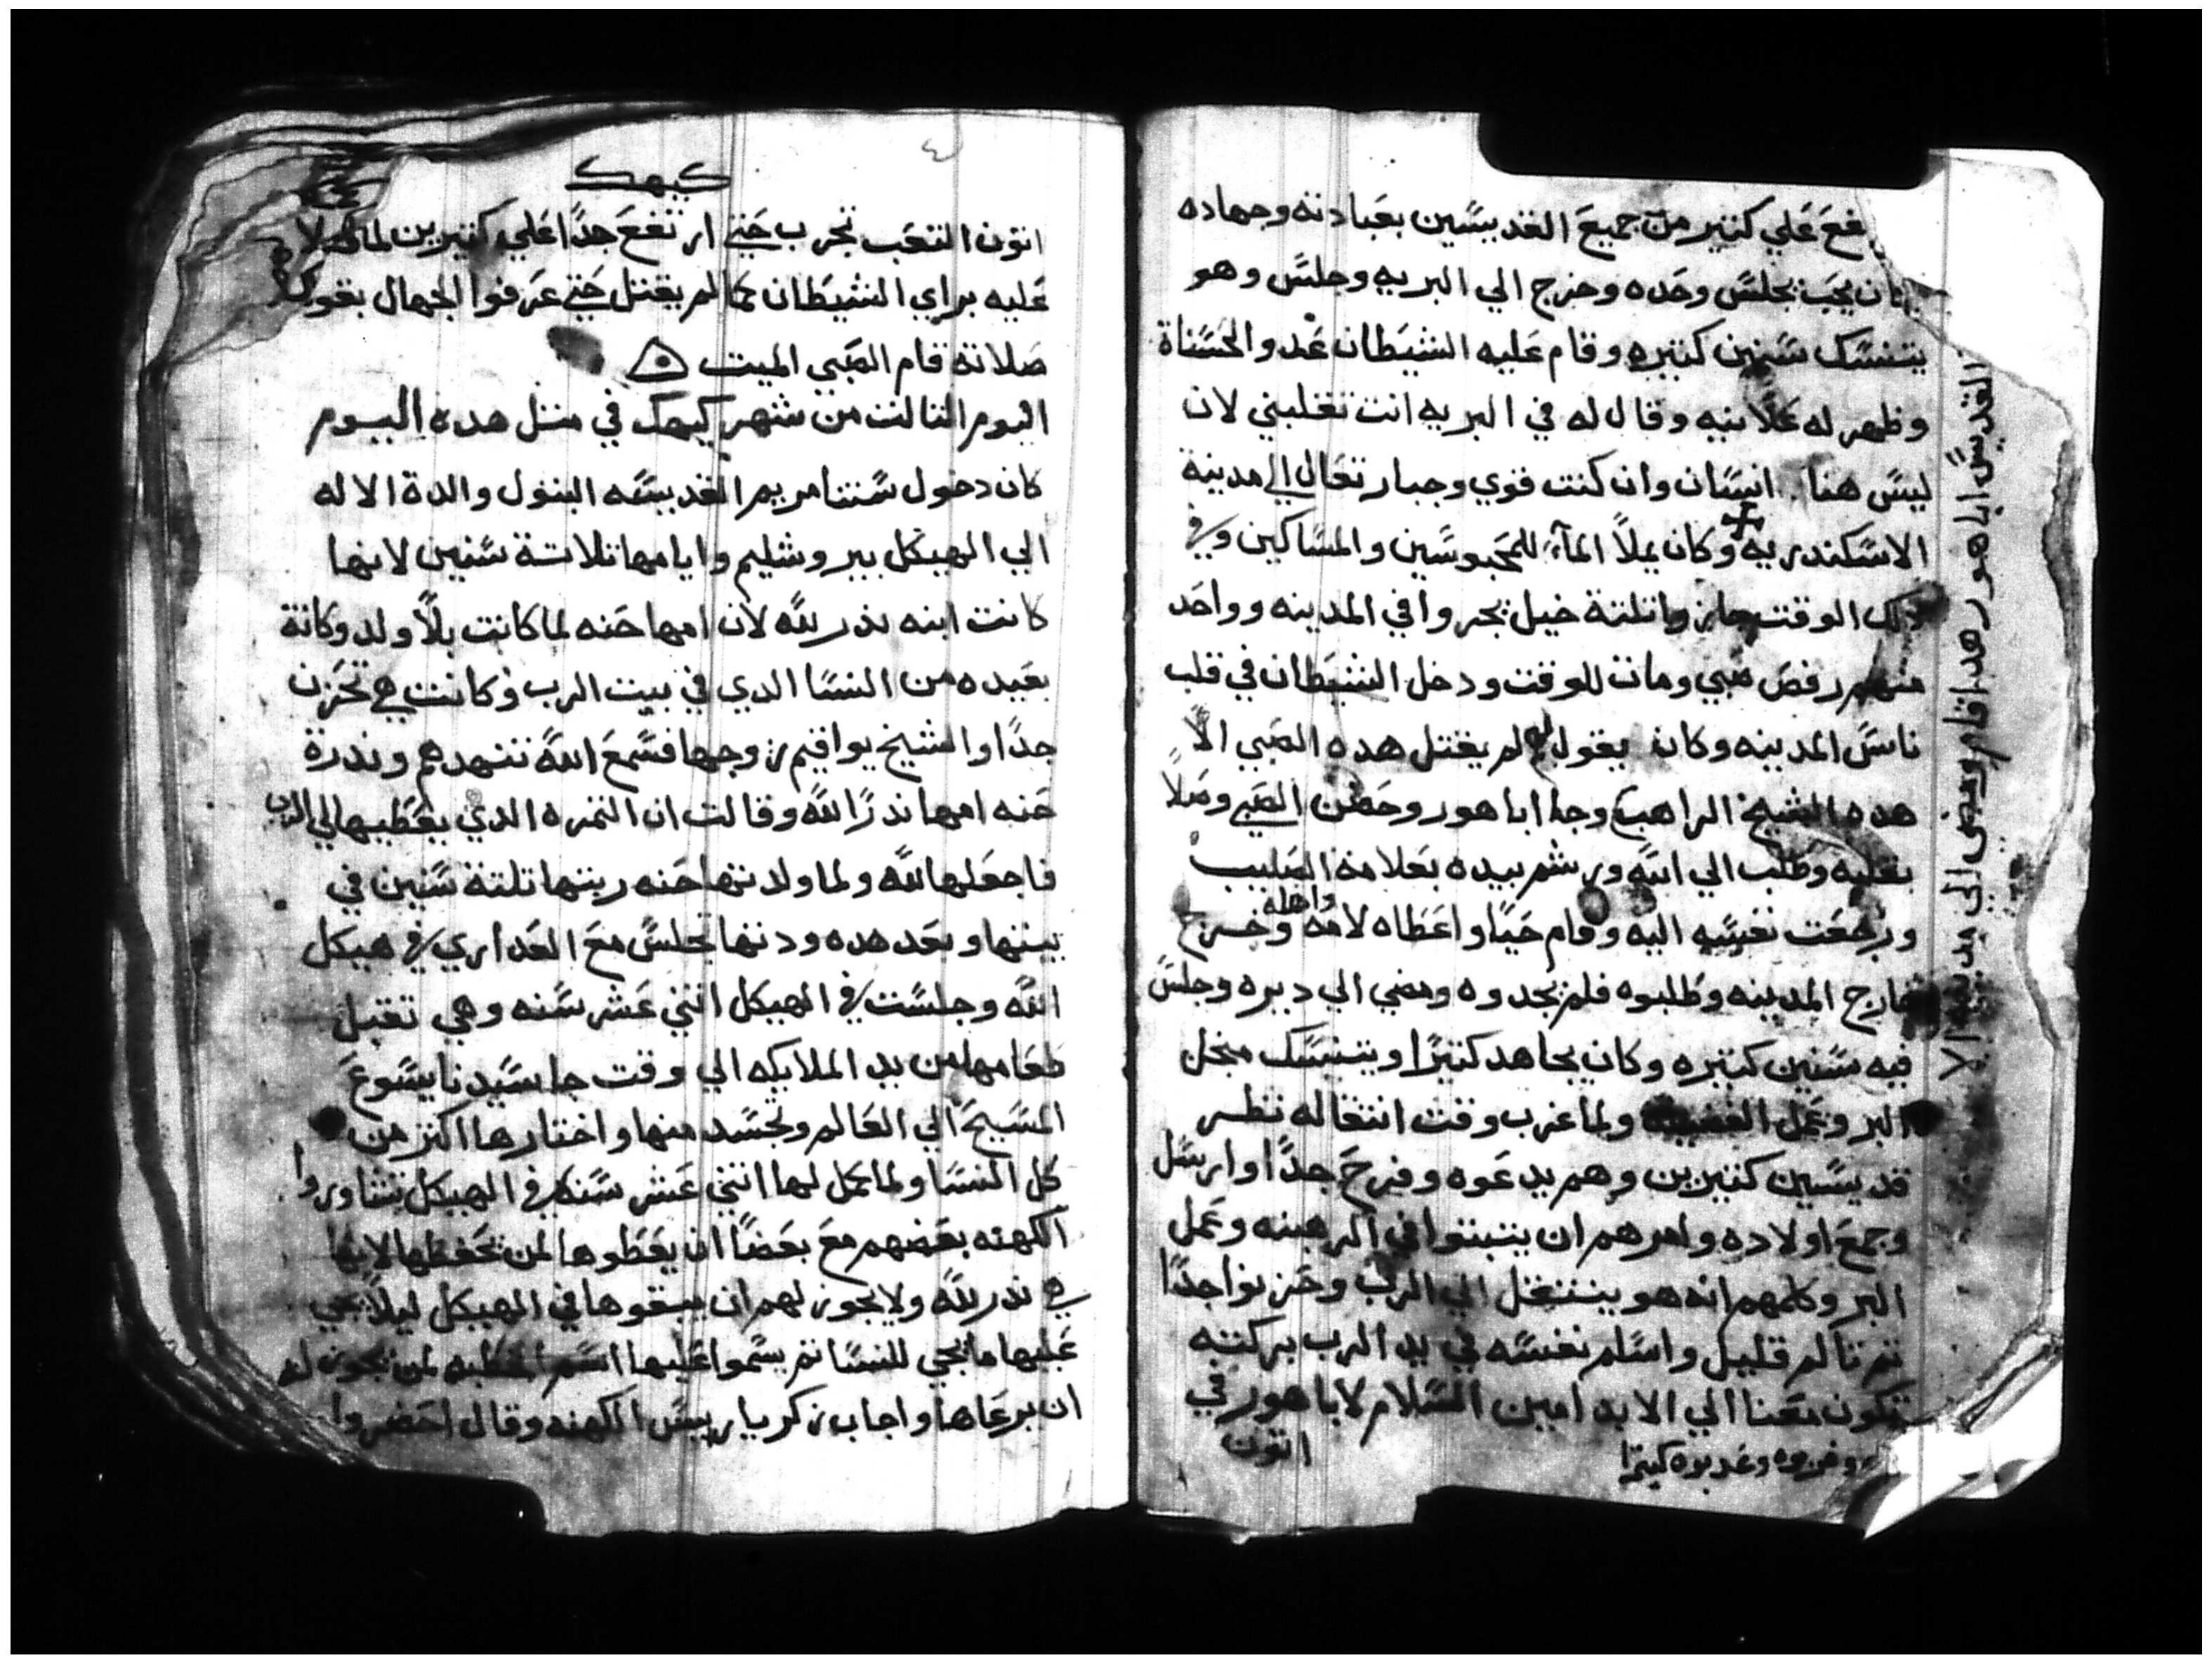 فع علي كتير من جميع القديسين بعبادته وجهاده
كان يحب يجلس وحده وخرج الي البريه وجلس وهو
يتنسك سنين كتيره وقام عليه الشيطان عدو الحسناة
وظهر له علانيه وقال له في البريه انت تغلبني لان
ليس هنا انسان وان كنت قوي وجبار تعال الي مدينة
الاسكندريه وكان يملا المآء للمحبوسين والمساكين وفي
ذلك الوقت جازوا تلتة خيل يجروا في المدينه وواحد
منهم رفص صبي ومات للوقت ودخل الشيطان في قلب
ناس المدينه وكان يقول لم يقتل هده الصبي الا
هده الشيخ الراهب وجا اباهور وحضن الصبي وصلا
بقلبه وطلب الي الله ورشم بيده بعلامة الصليب
ورجعت نفسه اليه وقام حيا واعطاه لامه واهله وخرج
خارج المدينه وطلبوه فلم يجدوه ومضي الي ديره وجلس
فيه سنين كتيره وكان يجاهد كتيرا ويتنسك منجل
البر وعمل الفضيله ولما غرب وقت انتقاله نظر
قديسين كتيرين وهم يدعوه وفرح جدا وارسل
وجمع اولاده وامرهم ان يتبتوا في الرهبنه وعمل
البر وكلمهم انه هو ينتقل الي الرب وحزنوا جدا
تم تالم قليل واسلم نفسه في يد الرب بركته
تكون معنا الي الابد امين السلام لاباهور في
اتون
وغدبوه كيترا
القديس اباهور هدا قام ومضي الي مدينه الا
كيهك
اتون التعب تجرب حتي ارتفع جدا علي كتيرين لما
عليه براي الشيطان كما لم يقتل حتي عرفوا الجهال بقوة
صلاته قام الصبي الميت
اليوم التالت من شهر كيهك في متل هده اليوم
كان دخول ستنا مريم القديسه البتول والدة الاله
الي الهيكل بيروشليم وايامها تلاتة سنين لانها
كانت ابنه ندر لله لان امها حنه لما كانت بلا ولد وكانة
بعيده من النسا الدي في بيت الرب وكانت هي تحزن
جدا والشيخ يواقيم زوجها فسمع الله تنهدهم وندرة
حنه امها ندرا لله وقالت ان التمره الدي يعطيها لي الرب
فاجعلها لله ولما ولدتها حنه ربتها تلتة سنين في
بيتها وبعد هده ودتها تجلس مع العداري في هيكل
الله وجلست في الهيكل اتني عشر سنه وهي تقبل
طعامها من يد الملايكه الي وقت جا سيدنا يسوع
المسيح الي العالم وتجسد منها واختارها اكتر من
كل النسا ولما كمل ليها اتني عشر سنه في الهيكل تشاوروا
الكهنه بعضهم مع بعضا ان يعطوها لمن يحفظها لانها
هي ندر لله ولا يجوز لهم ان يبقوها في الهيكل ليلا يجي
عليها ما يجي للنسا تم يسموا عليها اسم الخطبه لمن يجوز له
ان يرعاها واجاب زكريا رييس الكهنه وقال احضروا